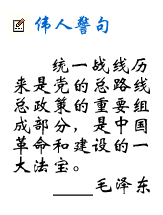 伟人警句
统一战线历
来是党的总路线
总政策的重要组
成部分，是中国
革命和建设的一
大法宝。
____毛泽东